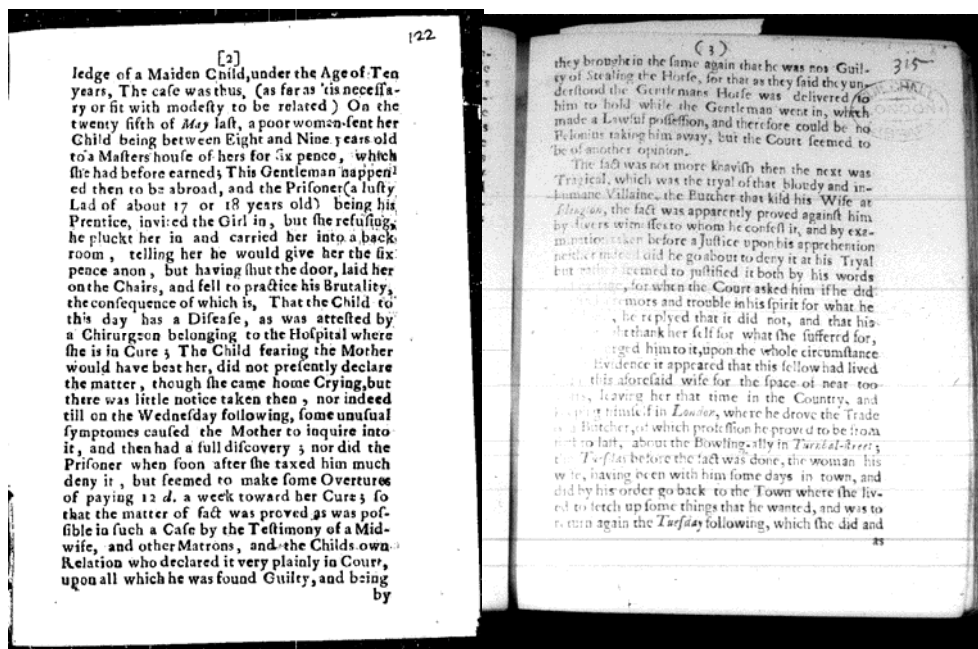 122
[2]
ledge of a Maiden Child, under the Age of Ten
years, The caſe was thus, (as far as 'tis neceſſa-
ry or fit with modeſty to be related) On the
twenty fifth of May laſt, a poor woman ſent her
Child being between Eight and Nine years old
to a Maſters houſe of hers for ſix pence, which
ſhe had before earned; This Gentleman happen
ed then to be abroad, and the Priſoner (a luſty
Lad of about 17 or 18 years old) being his
Prentice, invited the Girl in, but ſhe refuſing,
he pluckt her in and carried her into a back
room, telling her he would give her the ſix
pence anon, but having ſhut the door, laid her
on the Chairs, and fell to practice his Brutality,
the conſequence of which is, That the Child to
this day has a Diſeaſe, as was atteſted by
a Chirurgeon belonging to the Hoſpital where
ſhe is in Cure; The Child fearing the Mother
would have beat her, did not preſently declare
the matter, though ſhe came home Crying, but
there was little notice taken then, nor indeed
till on the Wedneſday following, ſome unuſual
ſymptomes cauſed the Mother to inquire into
it, and then had a full diſcovery; nor did the
Priſoner when ſoon after ſhe taxed him much
deny it, but ſeemed to make ſome Overtures
of paying 12 d. a week toward her Cure; ſo
that the matter of fact was proved as was poſ-
ſible in ſuch a Caſe by the Teſtimony of a Mid-
wife, and other Matrons, and the Childs own
Relation who declared it very plainly in Court,
upon all which he was found Guilty, and being
by
315
(3)
they brought in the ſame again that he was not Guil-
ty of Stealing the Horſe, for that as they ſaid they un-
derſtood the Gentlemans Horſe was delivered to
him to hold while the Gentleman went in, which
made a Lawful poſſeſſion, and therefore could be no
Felonius taking him away, but the Court ſeemed to
be of another opinion.
The fact was not more knaviſh then the next was
Tragical, which was the tryal of that bloudy and in-
humane Villaine, the Butcher that kild his Wife at
Iſlington, the fact was apparently proved againſt him
by divers witneſſes to whom he confeſt it, and by exa-
mination taken before a Juſtice upon his apprehention
neither indeed did he go about to deny it at his Tryal
but rather ſeemed to juſtified it both by his words
, for when the Court asked him if he did
remors and trouble in his ſpirit for what he
, he replyed that it did not, and that his
thank her ſelf for what ſhe ſufferrd for,
him to it, upon the whole circumſtance
Evidence it appeared that this fellow had lived
this aforeſaid wife for the ſpace of near too
, leaving her that time in the Country, and
keeping himſelf in London, where he drove the Trade
a Butcher, of which profeſſion he proved to be from
to laſt, about the Bowling-ally in Turnbal-ſtreet;
the Tueſday before the fact was done, the woman his
wife, having been with him ſome days in town, and
did by his order go back to the Town where ſhe liv-
ed to fetch up ſome things that he wanted, and was to
return again the Tueſday following, which ſhe did and
as